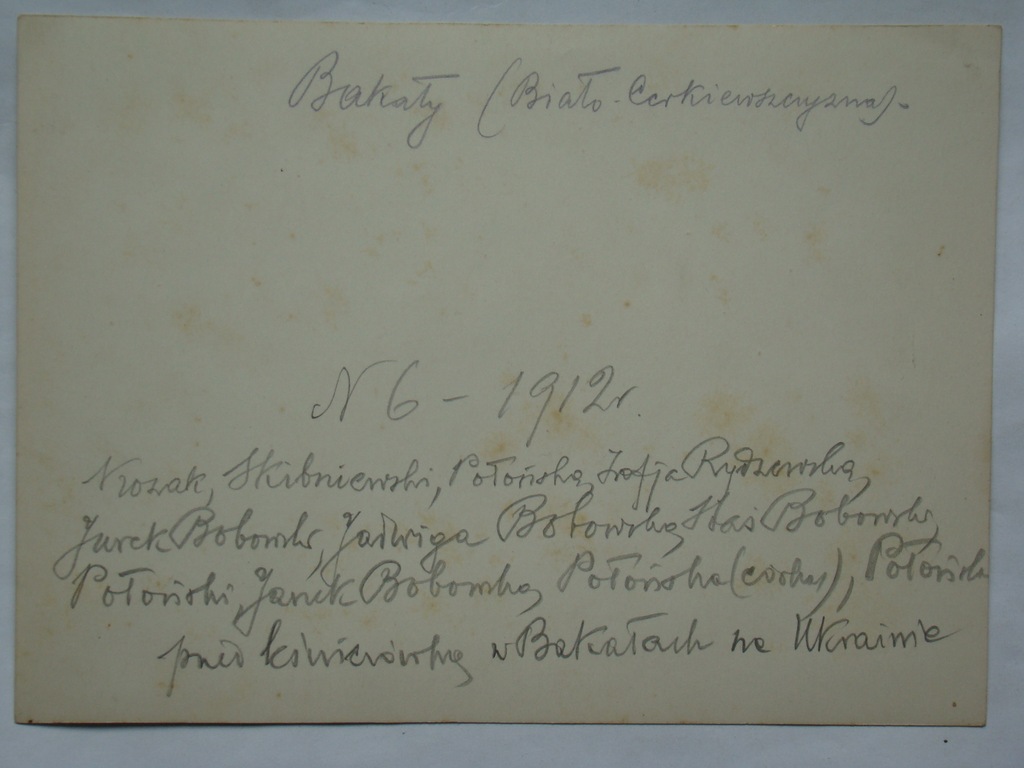 Bakały (Biało-Cerkiewszczyzna).
N 6 – 1912r.
Nowak, Skibniewski, Połońska, Zofja Rydzewska,
Jurek Bobowski, Jadwiga Bobowska, Staś Bobowski,
Połoński, Janek Bobowski, Połońska (córka), Połońska
przed w Bakałach na Ukrainie